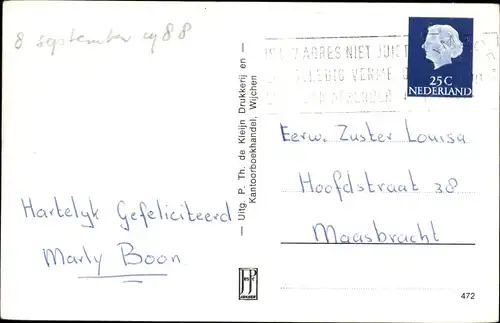 8 september 1988
25 C
NEDERLAND
ADRES NIET JUIST
VOLLEDIG VERME
AFZENDER
Uitg. P. Th. de Kleijn Drukkerij en
Kantoorboekhandel, Wijchen
Eerw. Zuster Louisa
Hoofdstraat 38
Maasbracht
Hartelyk Gefeliciteerd
Marly Boon
472